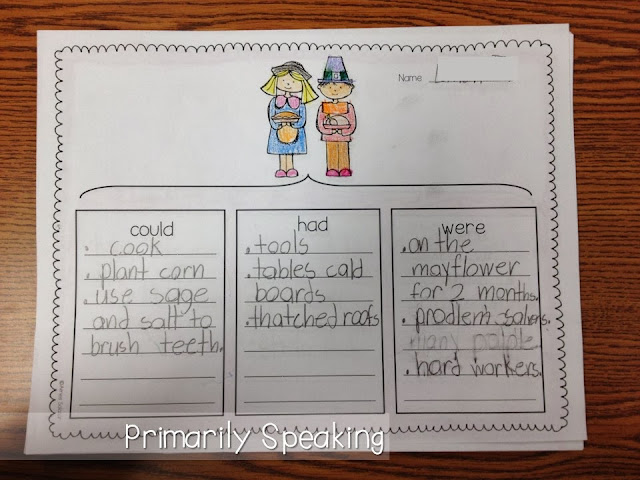 Name
could
• cook
• plant corn
• use sage
and salt to
brush teeth.
had
• tools
• tables cald
boards
• thatched roofs
were
• on the
mayflower
for 2 months.
• prodlem salvers.
many
• hard workers.
Primarily Speaking